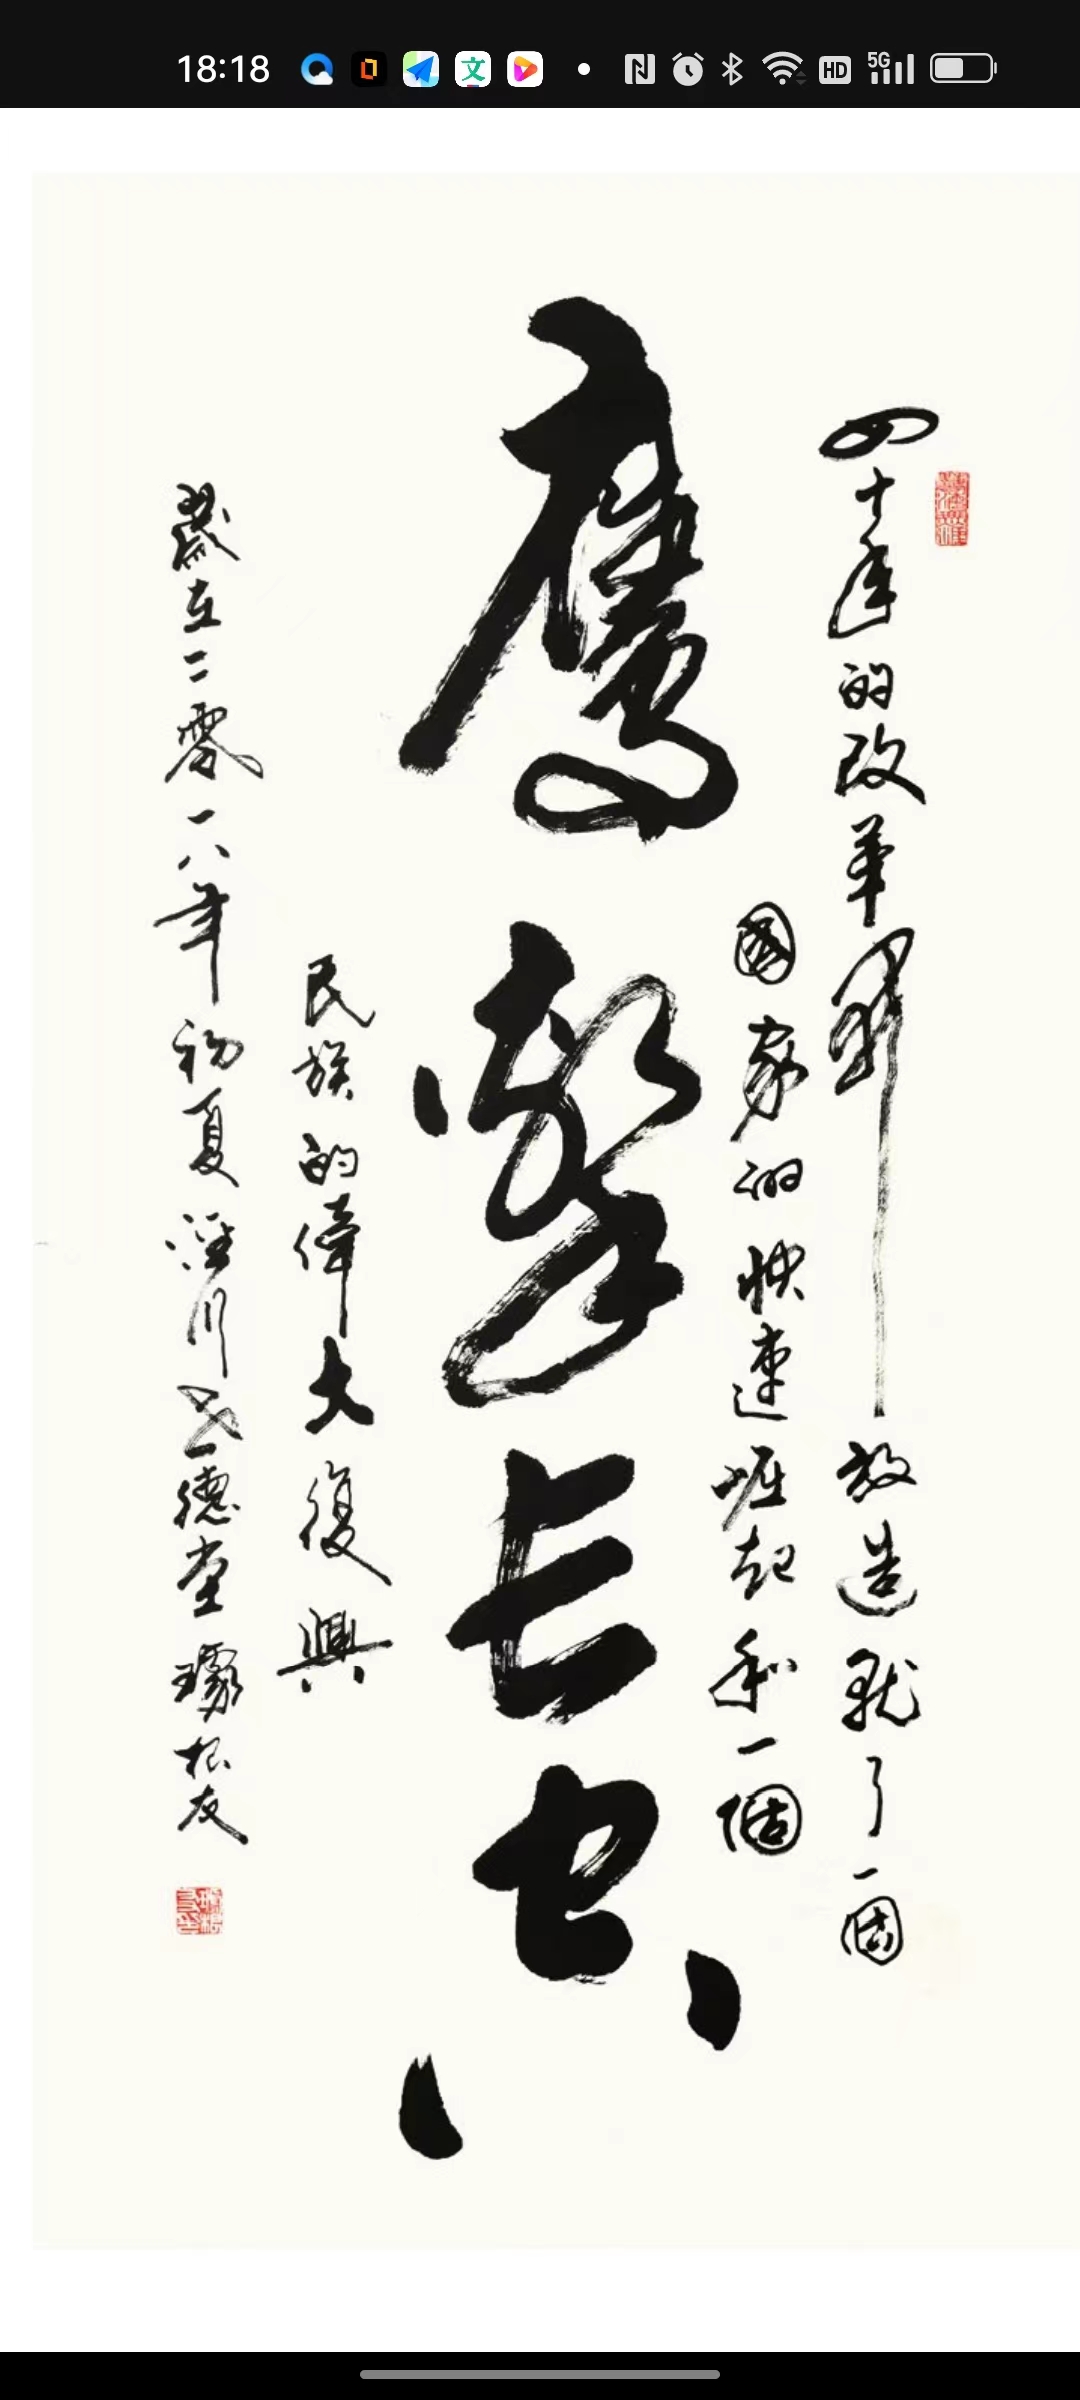 18:18
HD 5G
四十年的改革開放造就了一個
國家的快速崛起和一個
鷹擊長空
民族的偉大復興
歲在二零一八年初夏淫川一德堂璩根友